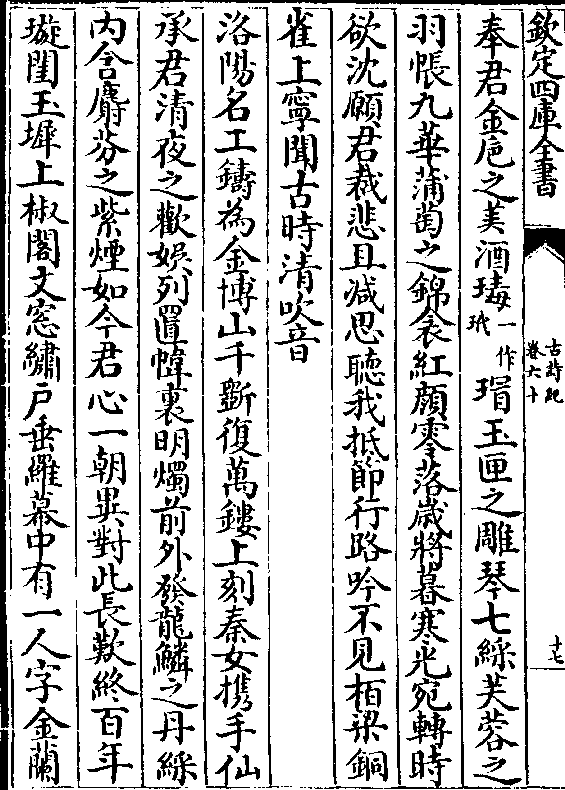 欽定四庫全書
古詩紀
卷六十
十七
奉君金巵之美酒瑇一作玳瑁玉匣之雕琴七綵芙蓉之
羽帳九華蒲萄之錦衾紅顔零落歲將暮寒光宛轉時
欲沈願君裁悲且減思聽我抵節行路吟不見柏梁銅
雀上寧聞古時清吹音
洛陽名工鑄為金博山千斲復萬鏤上刻秦女攜手仙
承君清夜之歡娛列置幃裏明燭前外發龍鱗之丹綵
内含麝芬之紫煙如今君心一朝異對此長歎終百年
璇閨玉墀上椒閣文窓繡戶垂羅幕中有一人字金蘭